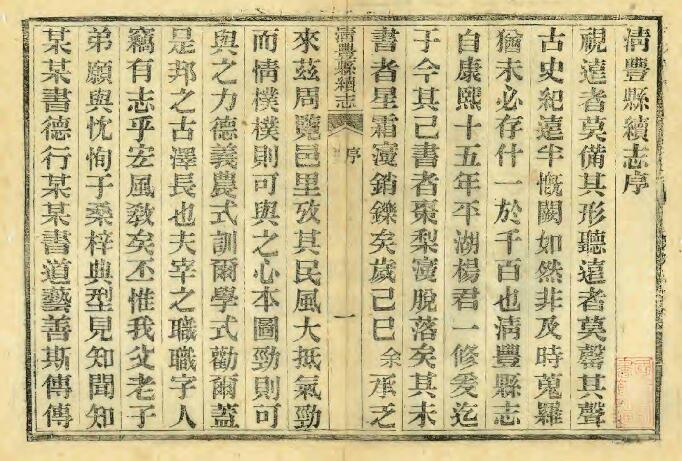 淸豐縣續志序
視遠者莫備其形聽遠者莫罄其聲
古史紀遠半慨闕如然非及時蒐羅
猶未必存什一於千百也淸豐縣志
自康熙十五年平湖楊君一修爰迄
于今其已書者棗梨寖脫落矣其未
書者星霜寖銷鑠矣歲己巳余承乏
淸豐縣續志 序 一
來茲周覽邑里攷其民風大抵氣勁
而情樸樸則可與之心本圖勁則可
與之力德義農式訓爾學式勸爾蓋
是邦之古澤長也夫宰之職職字人
竊有志乎宏風敎矣丕惟我父老子
弟願與忱恂子桑梓典型見知聞知
某某書德行某某書道藝善斯傳傳